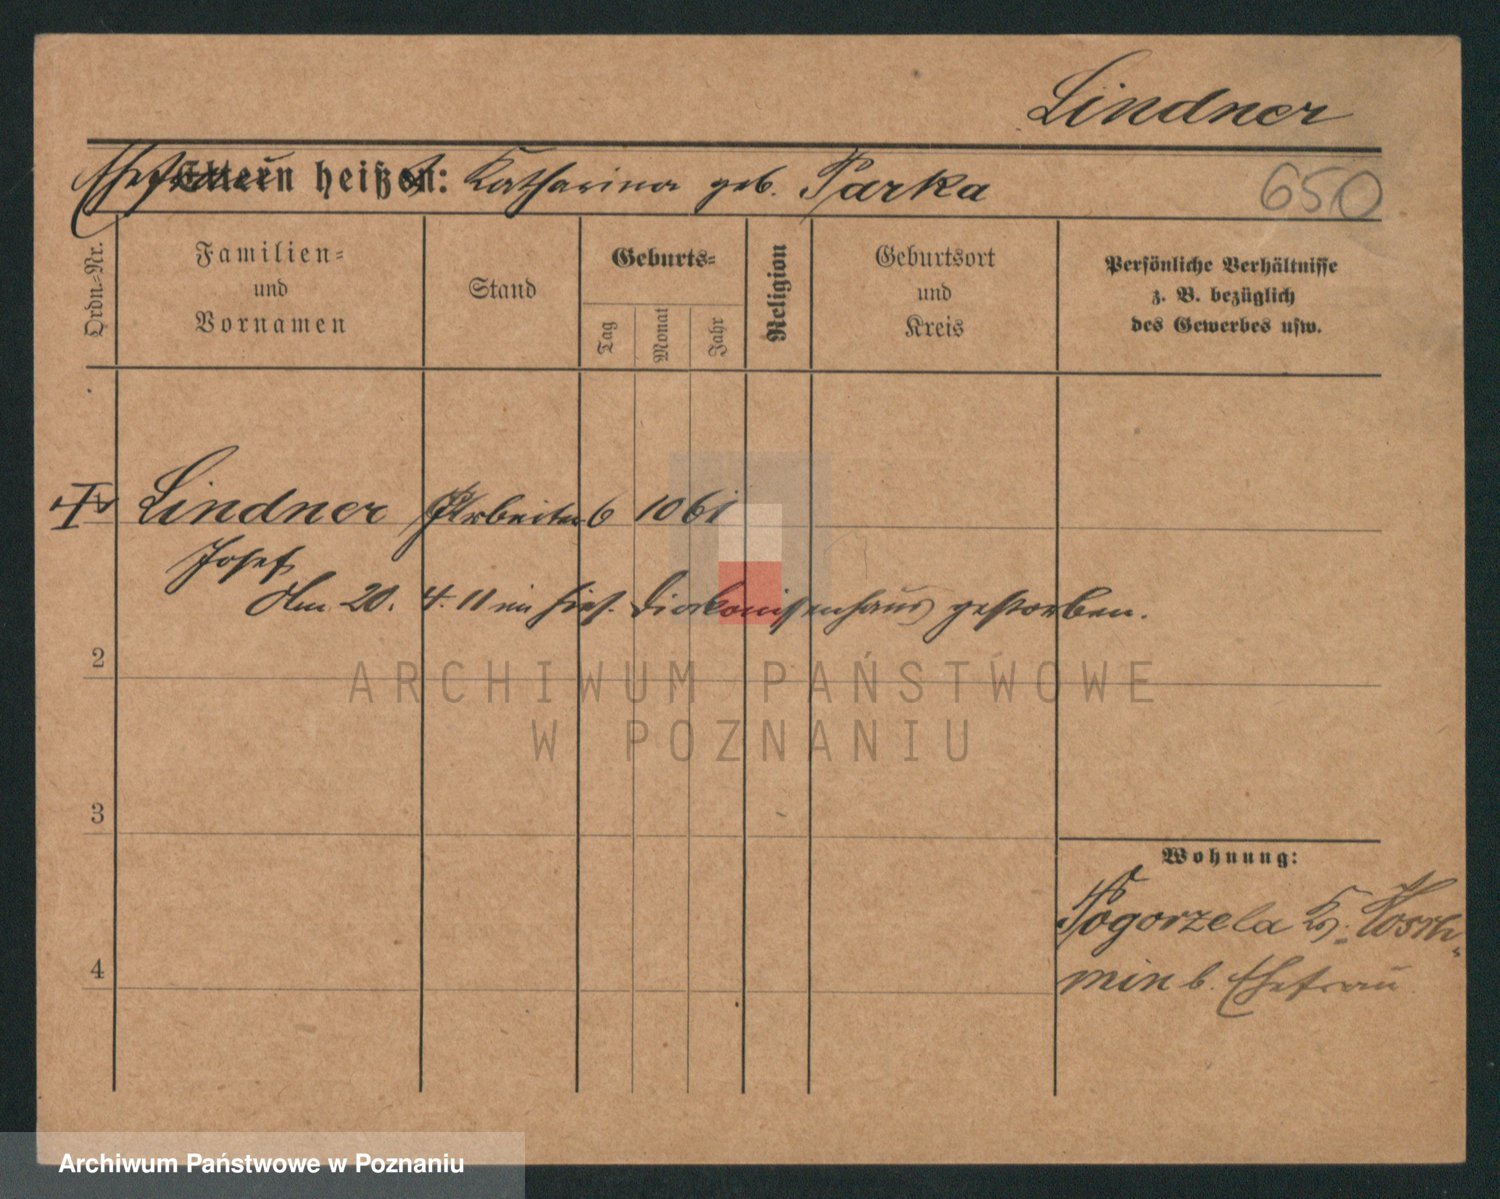 Lindner
Ehefrau Eltern heißen: Katharina geb. Parka
650
Ordn.-Nr.
Familien-
und
Vornamen
Stand
Geburts-
Tag
Monat
Jahr
Religion
Geburtsort
und
Kreis
Persönliche Verhältnisse
z. B. bezüglich
des Gewerbes usw.
Lindner Arbeiter 6 10 61
Josef
Am 20. 4. 11 im hies. Diakonissenhaus gestorben.
2
ARCHIWUM PAŃSTWOWE
W POZNANIU
3
Wohnung:
Pogorzela Kr. Kosch-
4
min b. Ehefrau.
Archiwum Państwowe w Poznaniu